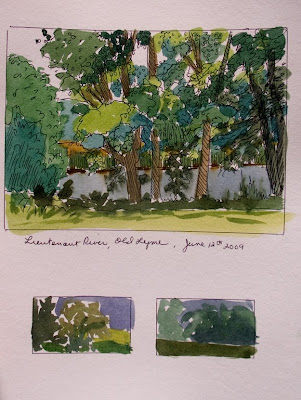 Lieutenant River, Old Lyme, June 12th 2009